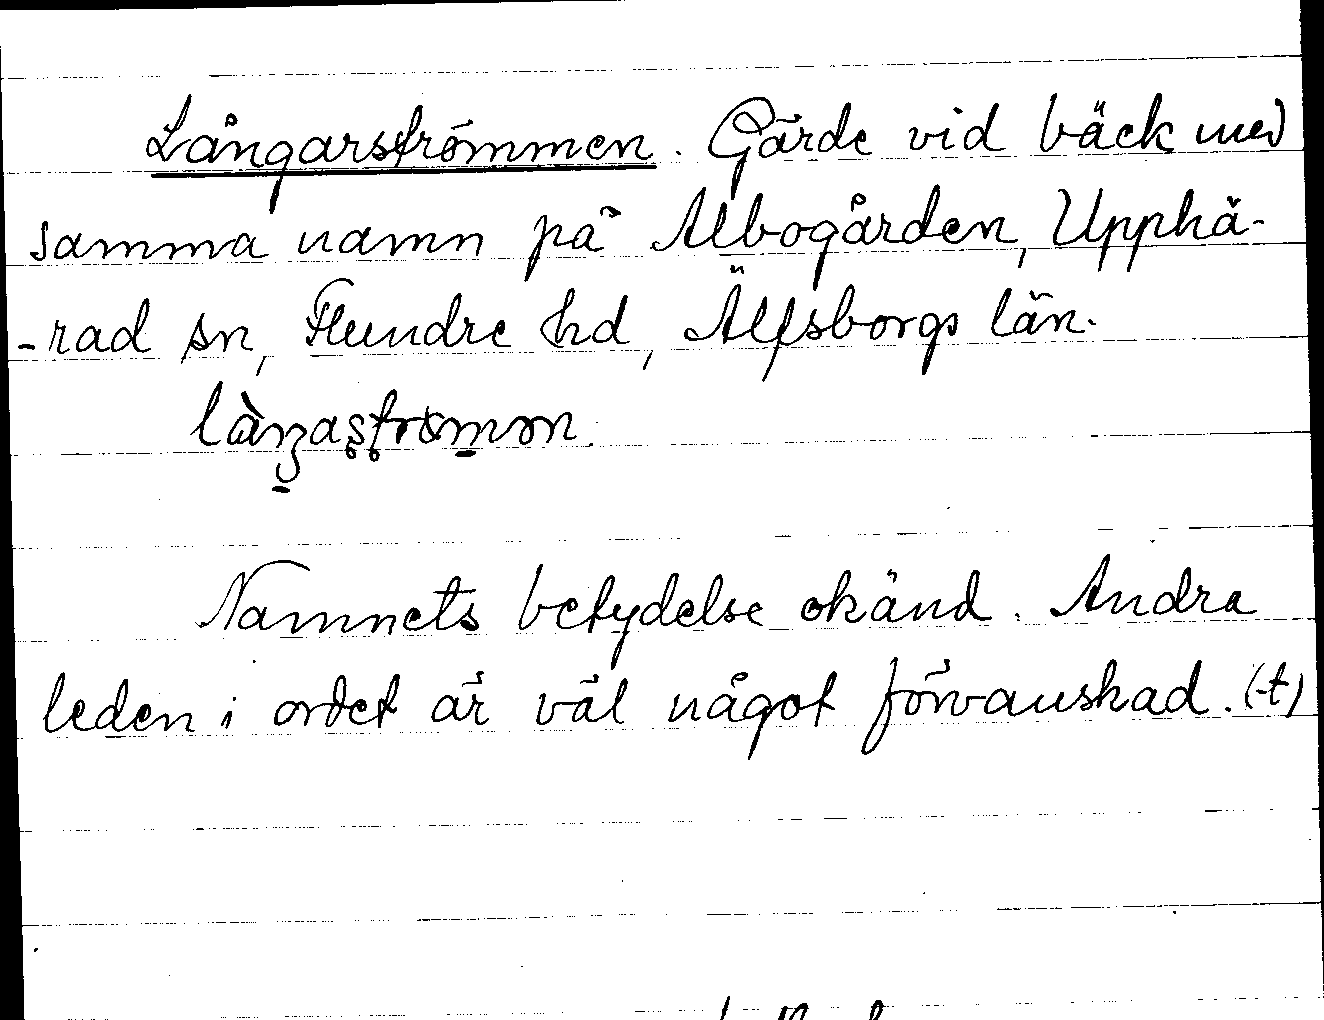 Långarströmmen. Gärde vid bäck med
samma namn på Albogården, Upphä-
-rad sn, Flundre hd, Älfsborgs län.
Namnets betydelse okänd. Andra
leden i ordet är väl något förvanskad. (-t)